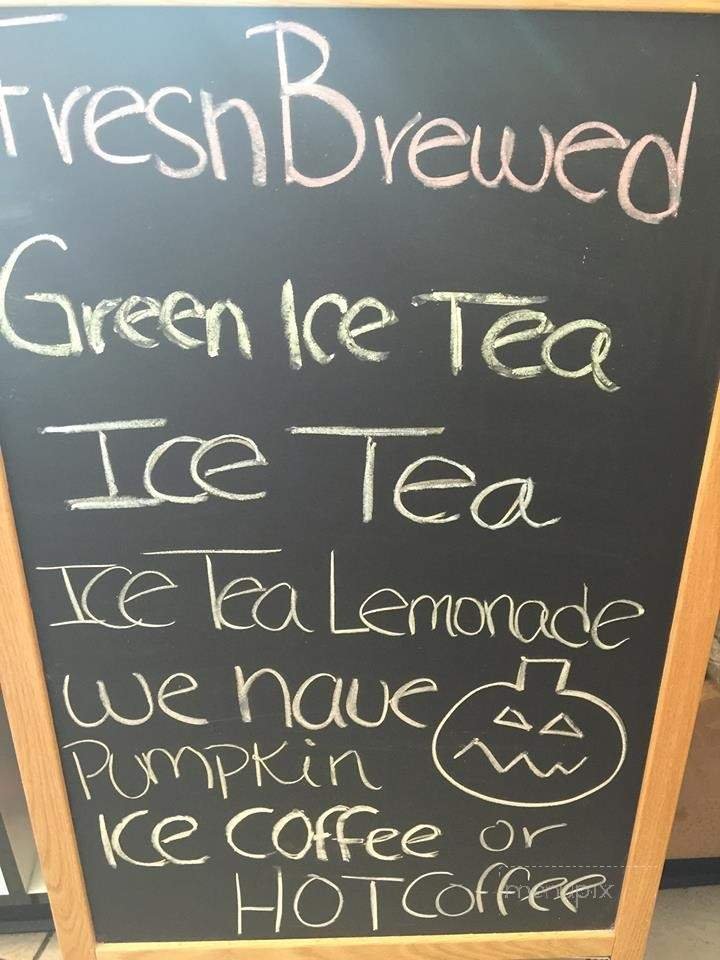 Fresh Brewed
Green Ice Tea
Ice Tea
Ice Tea Lemonade
we have
Pumpkin
Ice Coffee or
HOT Coffee
menupix